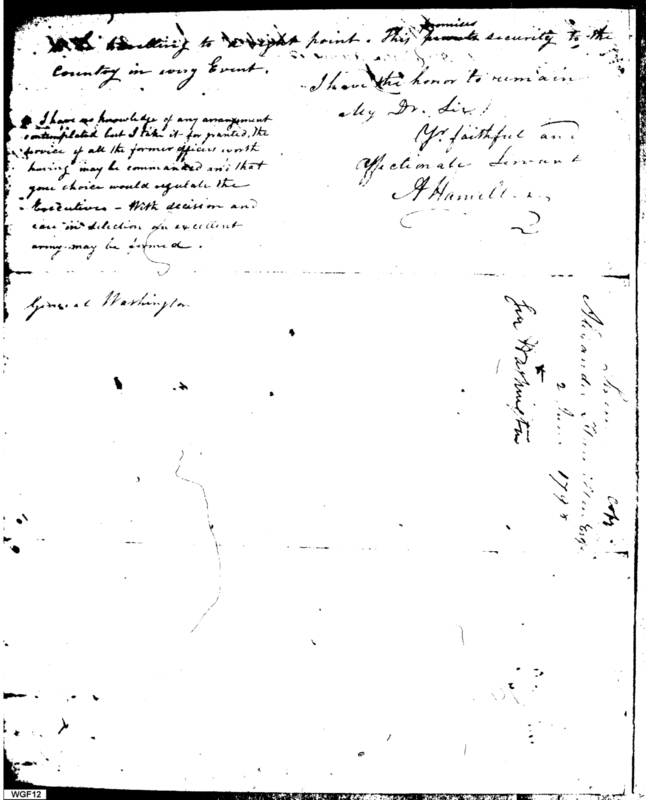 travelling to a right point. This promises private security to the
Country in every Event.
I have the honor to remain
My Dr. Sir
Yr. faithful and
Affectionate Servant
A Hamilton
I have no knowledge of any arrangement
contemplated but I take it for granted, the
service of all the former officers worth
having may be commanded and that
your choice would regulate the
Executives – With decision and
care in selection an excellent
army may be formed.
General Washington
From
Alexander Hamilton Esqr.
2 June 1798
Gen Washington
Copy
WGF12